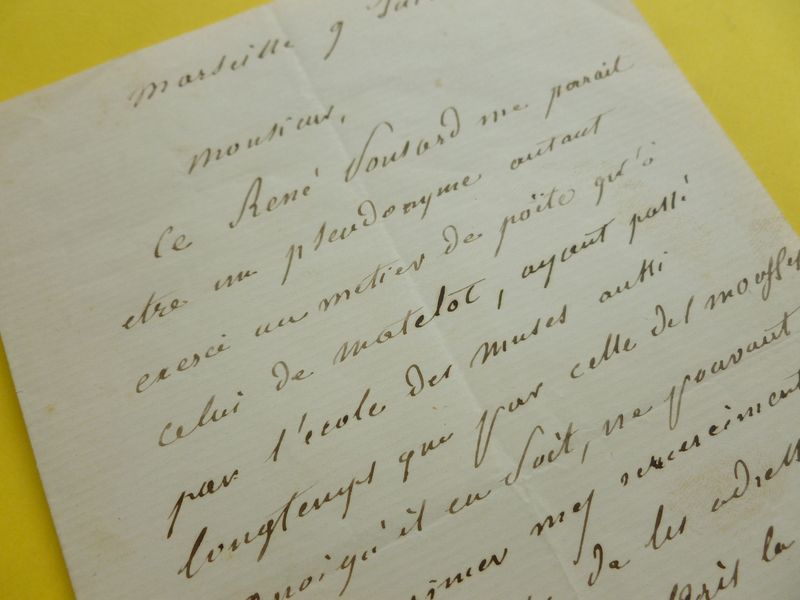 Marseille 9
Monsieur,
Ce René Ponsard me parait
etre un pseudonyme autant
exercé au métier de pöète qu'à
celui de matelot, ayant passé
par l'école des muses aussi
longtemps que par celle des mousses
quoiqu'il en soit, ne pouvant
mes remerciment
de les
la